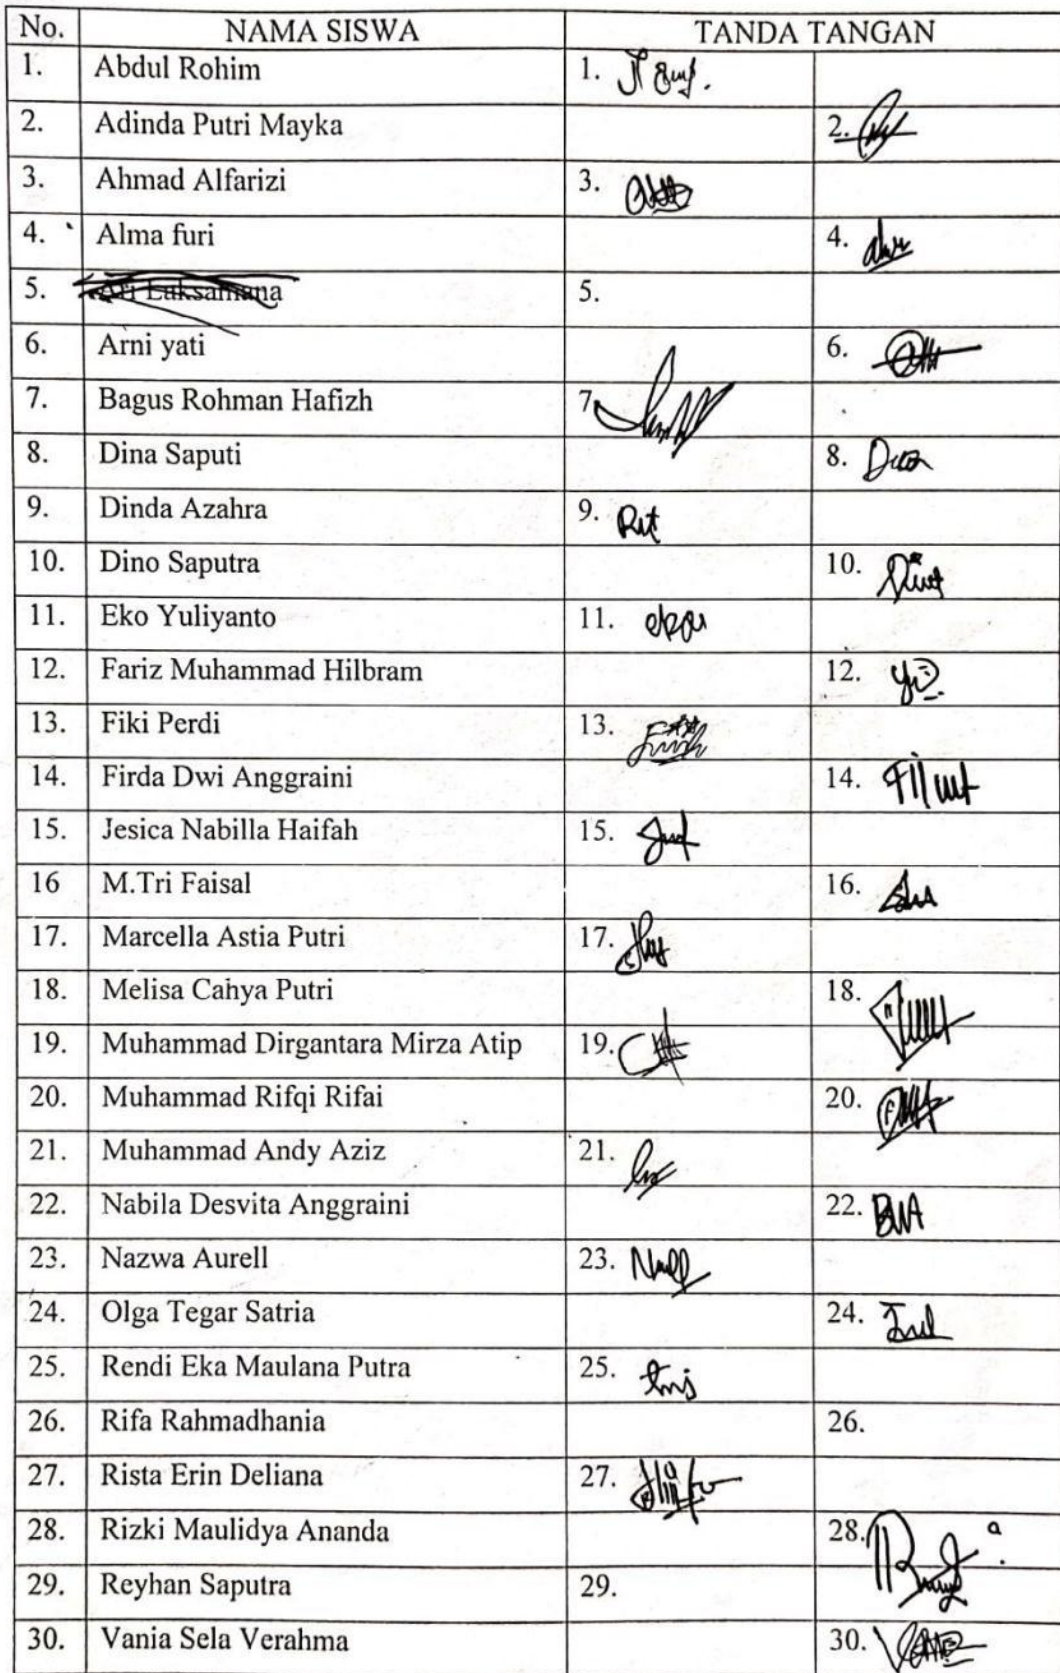 No. NAMA SISWA TANDA TANGAN
1. Abdul Rohim 1.
2. Adinda Putri Mayka 2.
3. Ahmad Alfarizi 3.
4. Alma furi 4.
5. Laksamana 5.
6. Arni yati 6.
7. Bagus Rohman Hafizh 7
8. Dina Saputi 8.
9. Dinda Azahra 9.
10. Dino Saputra 10.
11. Eko Yuliyanto 11.
12. Fariz Muhammad Hilbram 12.
13. Fiki Perdi 13.
14. Firda Dwi Anggraini 14.
15. Jesica Nabilla Haifah 15.
16 M.Tri Faisal 16.
17. Marcella Astia Putri 17.
18. Melisa Cahya Putri 18.
19. Muhammad Dirgantara Mirza Atip 19.
20. Muhammad Rifqi Rifai 20.
21. Muhammad Andy Aziz 21.
22. Nabila Desvita Anggraini 22.
23. Nazwa Aurell 23.
24. Olga Tegar Satria 24.
25. Rendi Eka Maulana Putra 25.
26. Rifa Rahmadhania 26.
27. Rista Erin Deliana 27.
28. Rizki Maulidya Ananda 28.
29. Reyhan Saputra 29.
30. Vania Sela Verahma 30.